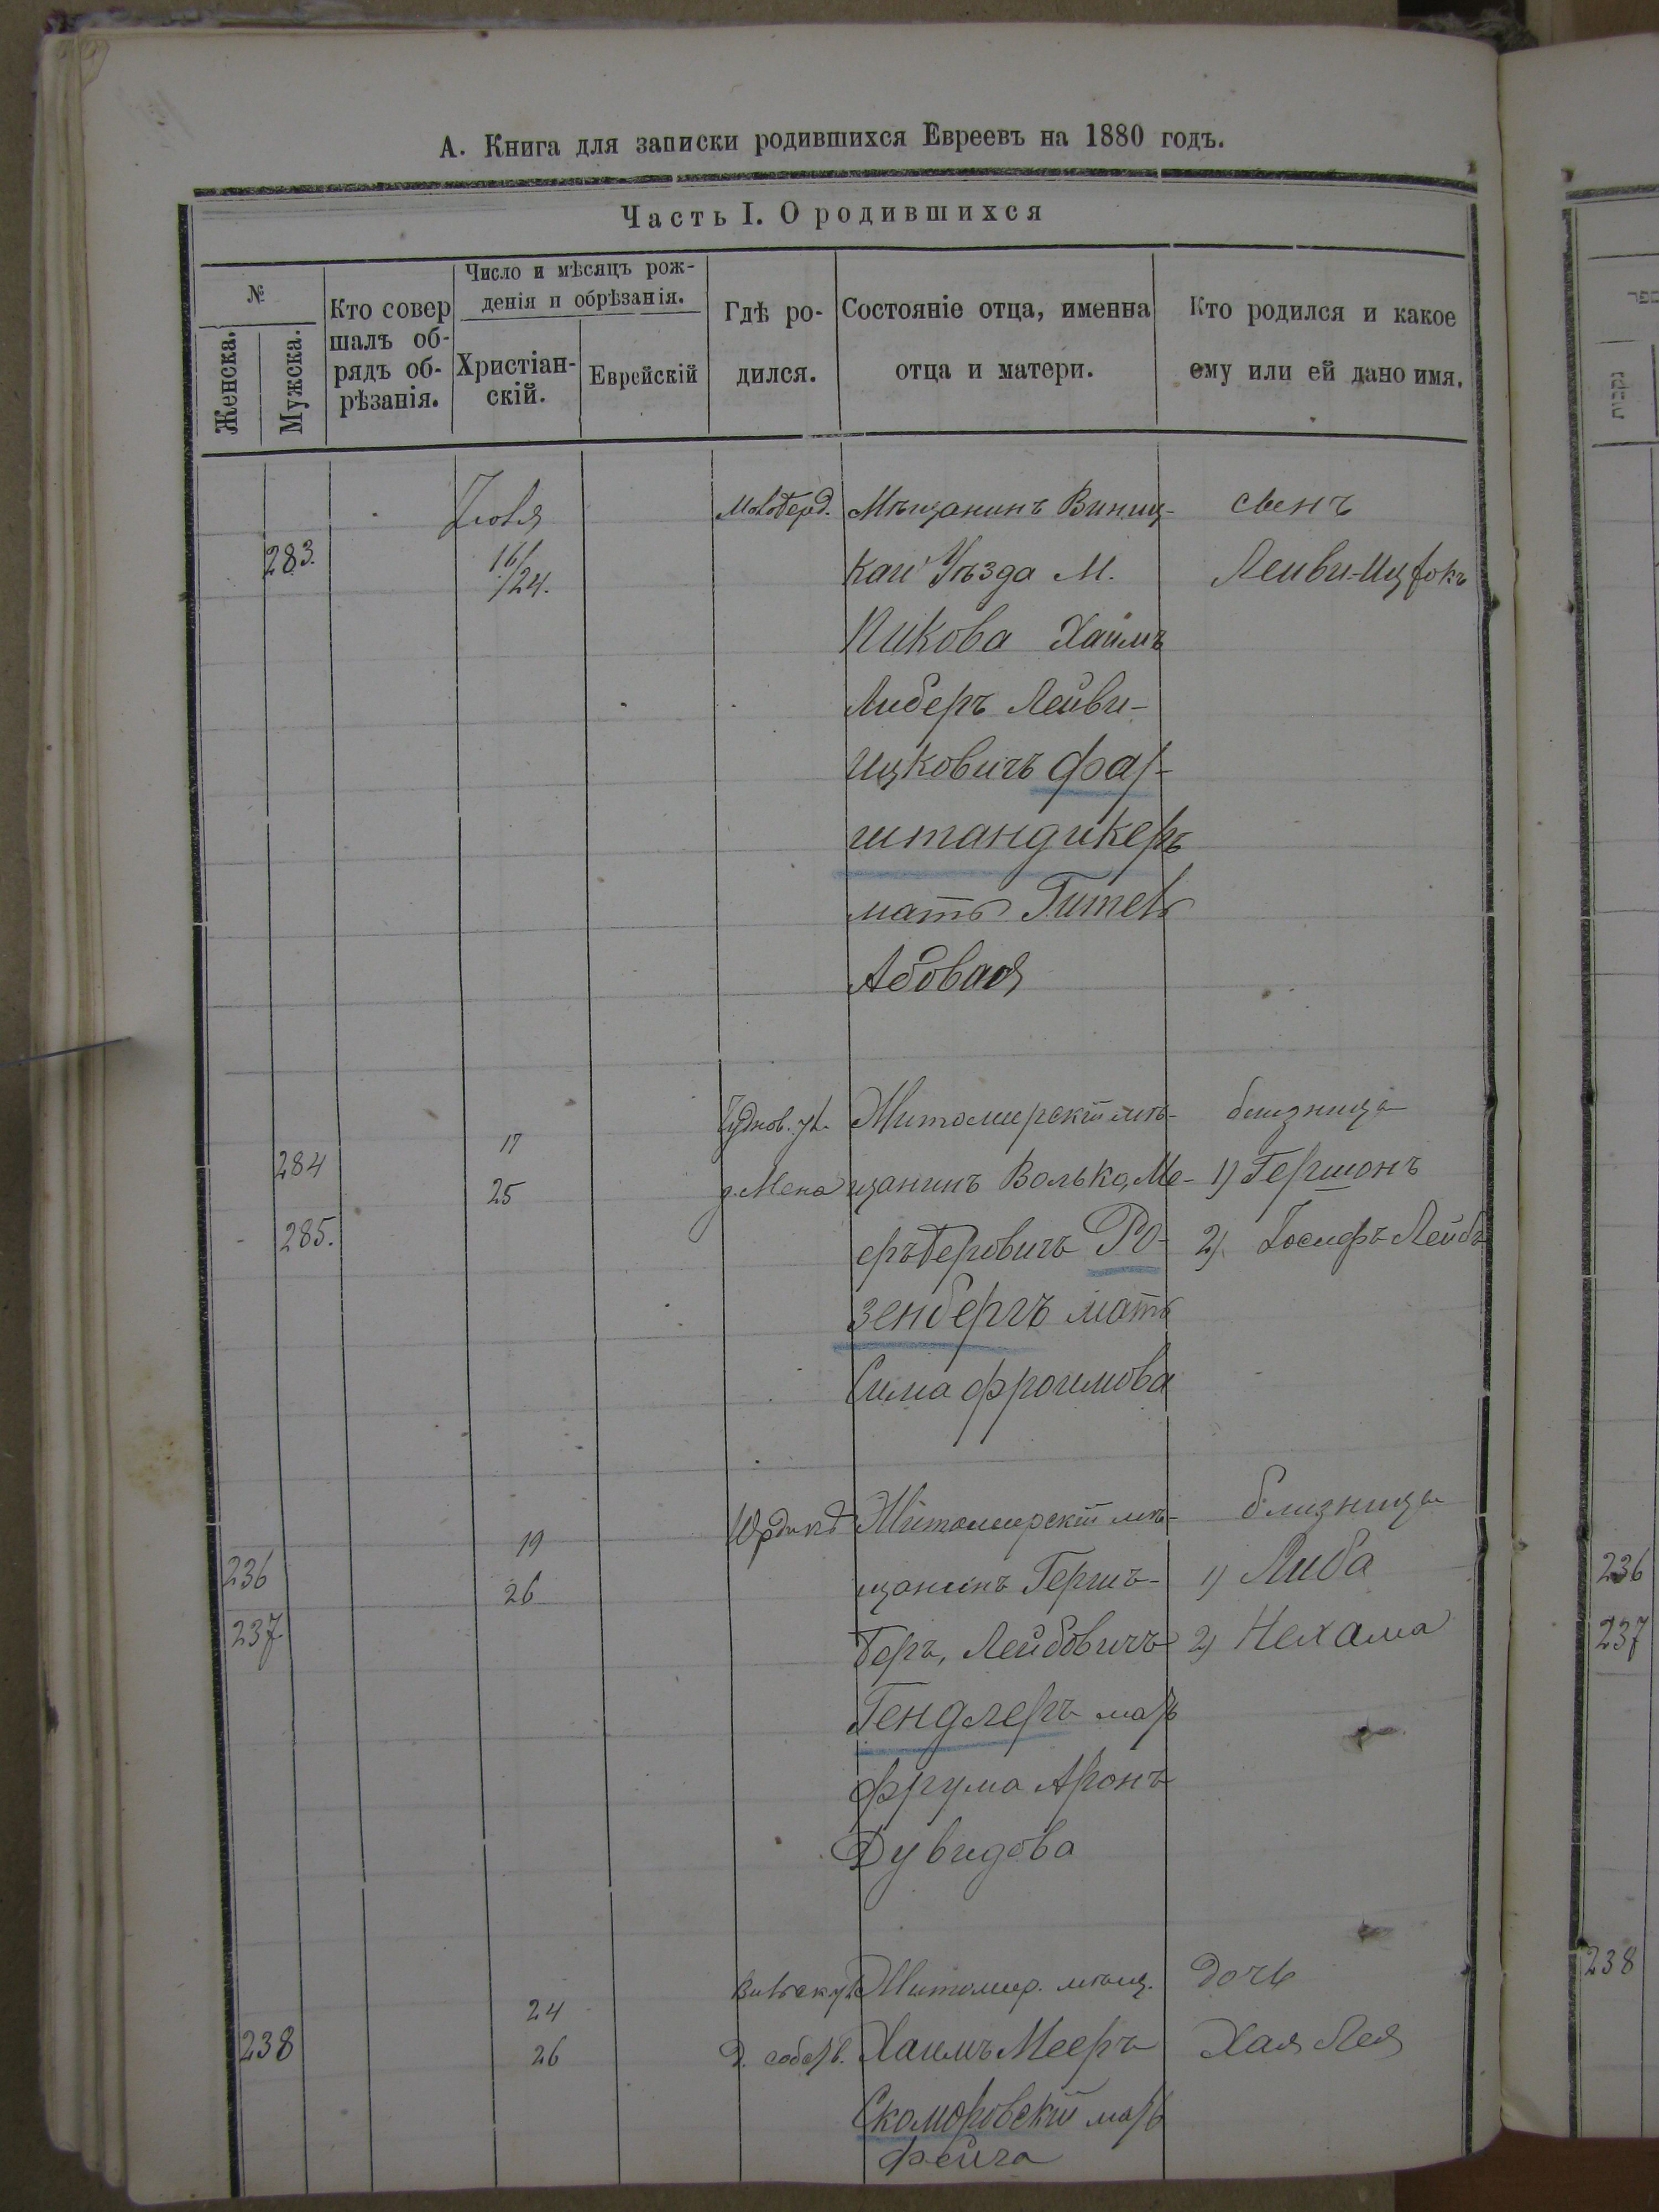 А. Книга для записки родившихся Евреевъ на 1880 годъ.
Часть I. О родившихся
№
Женска.
Мужска.
Кто совер
шалъ об-
рядъ об-
рѣзанія.
Число и мѣсяцъ рож-
денія и обрѣзанія.
Христіан-
скій.
Еврейскій
Гдѣ ро-
дился.
Состояніе отца, именна
отца и матери.
Кто родился и какое
ему или ей дано имя.
283.
Іюля
16/
/24.
Мѣщанинъ Виниц-
каго Уѣзда М.
Пикова Хаимъ
Либеръ Лейви-
Ицковичъ Фар-
штандикеръ
мать Гитель
Абовая
сынъ
Лейви-Ицхокъ
284
285.
17
25
Чуднов. ул.
Житомирскій мѣ-
щанинъ Волько, Ме-
еръ Беровичъ Ро-
зенбергъ мать
Сима Фроимова
близнеца
1) Гершонъ
2) Іосифъ Лейбъ
236
237
19
26
Житомирскій мѣ-
щанинъ Гершъ-
Беръ, Лейбовичъ
Гендлеръ мать
Фрума Аронъ
Дувидова
близнецы
1) Либа
2) Нехама
238
24
26
д. собств.
Житомир. мѣщ.
Хаимъ Мееръ
Скоморовскій мать
Фейга
дочь
Хая Лея
236
237
238